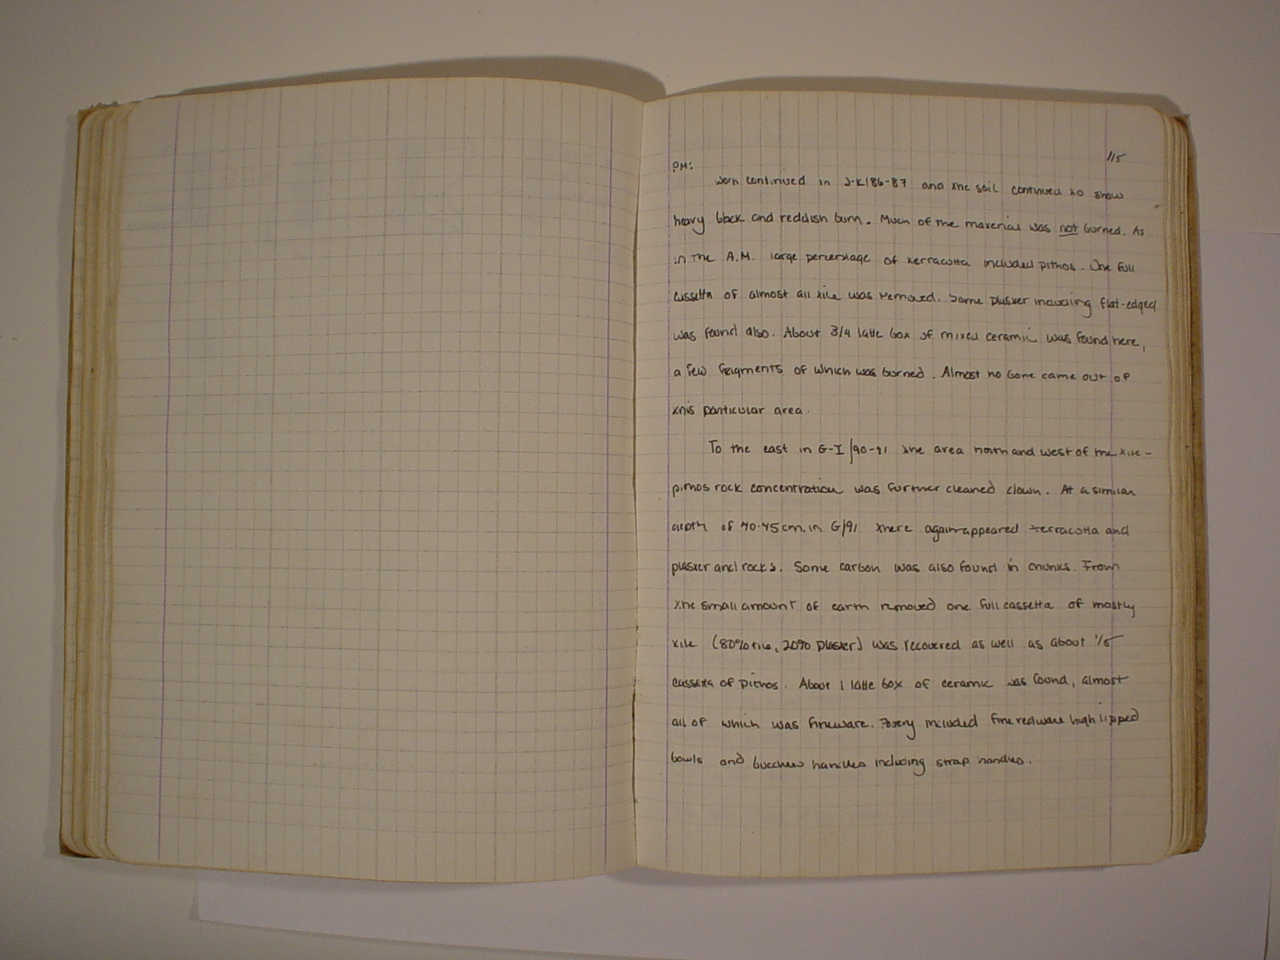 115
PM:
Work continued in J-K/86-87 and the soil continued to show
heavy black and reddish burn. Much of the material was not burned. As
in the A.M. large percentage of terracotta included pithos. One full
cassetta of almost all tile was removed. Some plaster including flat-edged
was found also. About 3/4 latte box of mixed ceramic was found here,
a few fragments of which was burned. Almost no bone came out of
this particular area.
To the east in G-I/90-91 the area north and west of the tile-
pithos rock concentration was further cleaned down. At a similar
depth of 40-45 cm. in G/91 there again appeared terracotta and
plaster and rocks. Some carbon was also found in chunks. From
the small amount of earth removed one full cassetta of mostly
tile (80% tile, 20% plaster) was recovered as well as about 1/5
cassetta of pithos. About 1 latte box of ceramic was found, almost
all of which was fineware. Potery included fine redware high lipped
bowls and bucchero handles including strap handles.